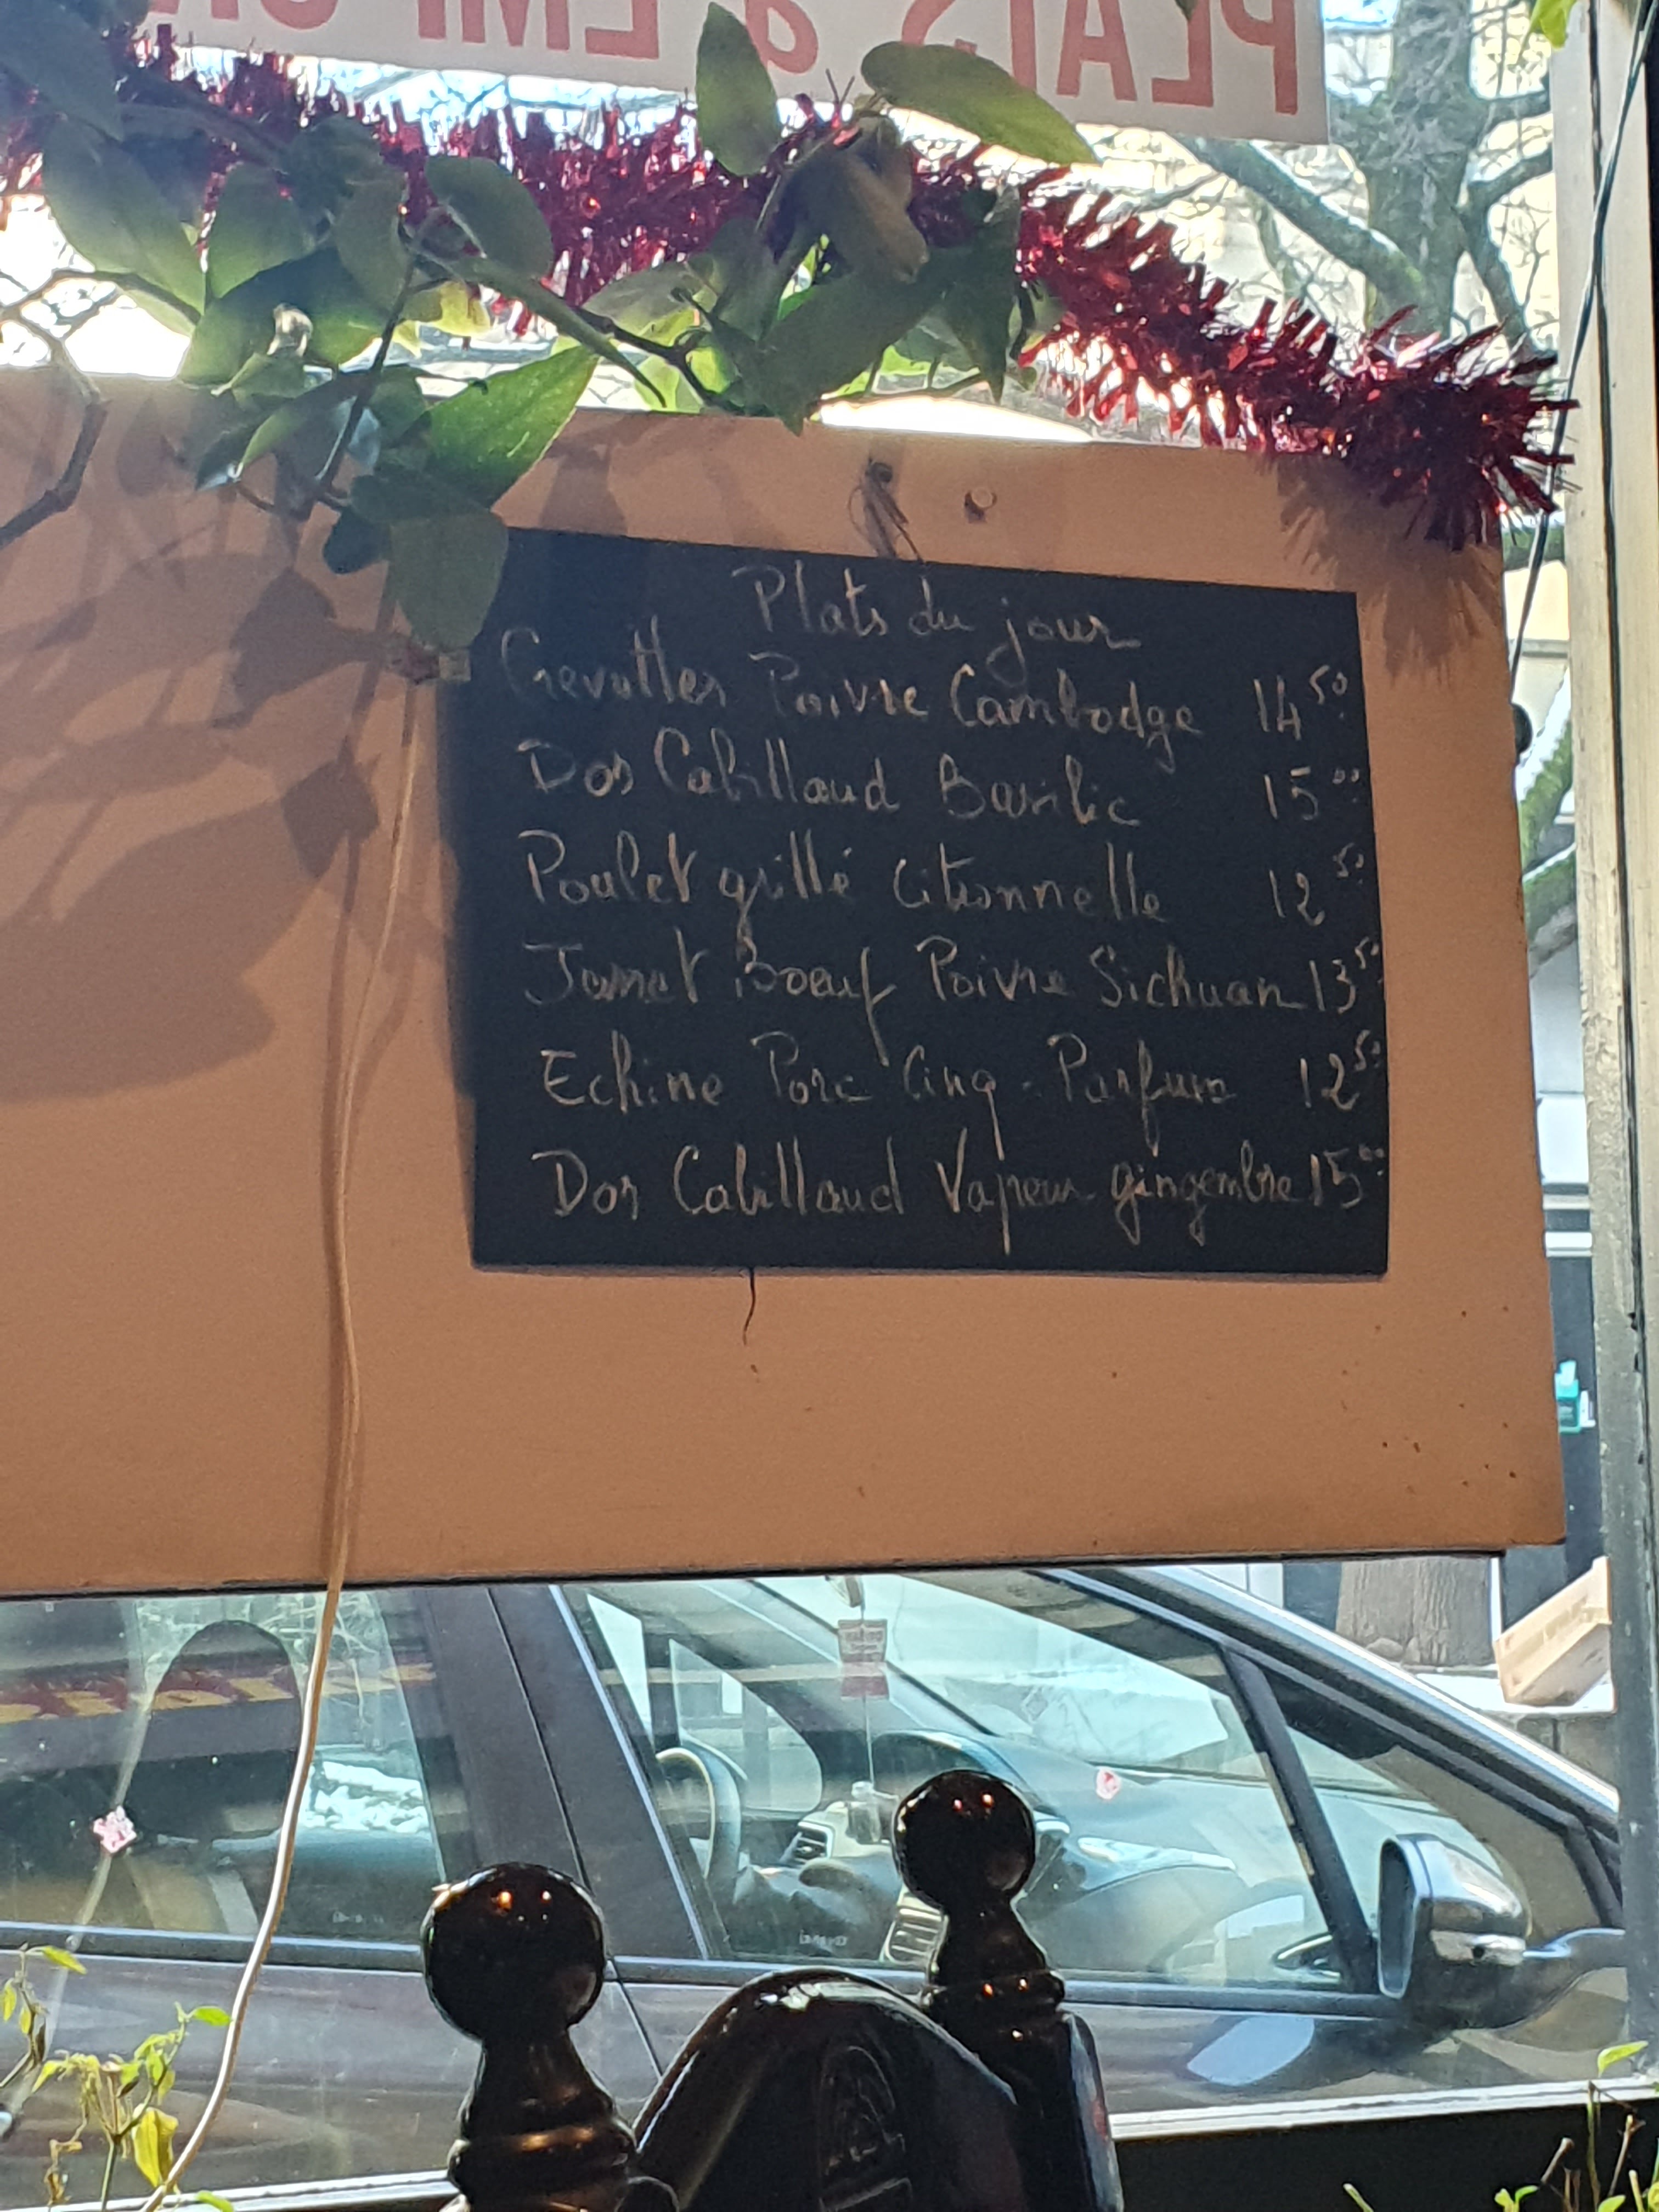 PLATS à EMPO
Plats du jour
Crevettes Poivre Cambodge 14 50
Dos Cabillaud Basilic 15 00
Poulet grillé citronnelle 12 50
Jarret Boeuf Poivre Sichuan 13 50
Echine Porc Cinq-Parfum 12 50
Dos Cabillaud Vapeur gingembre 15 00